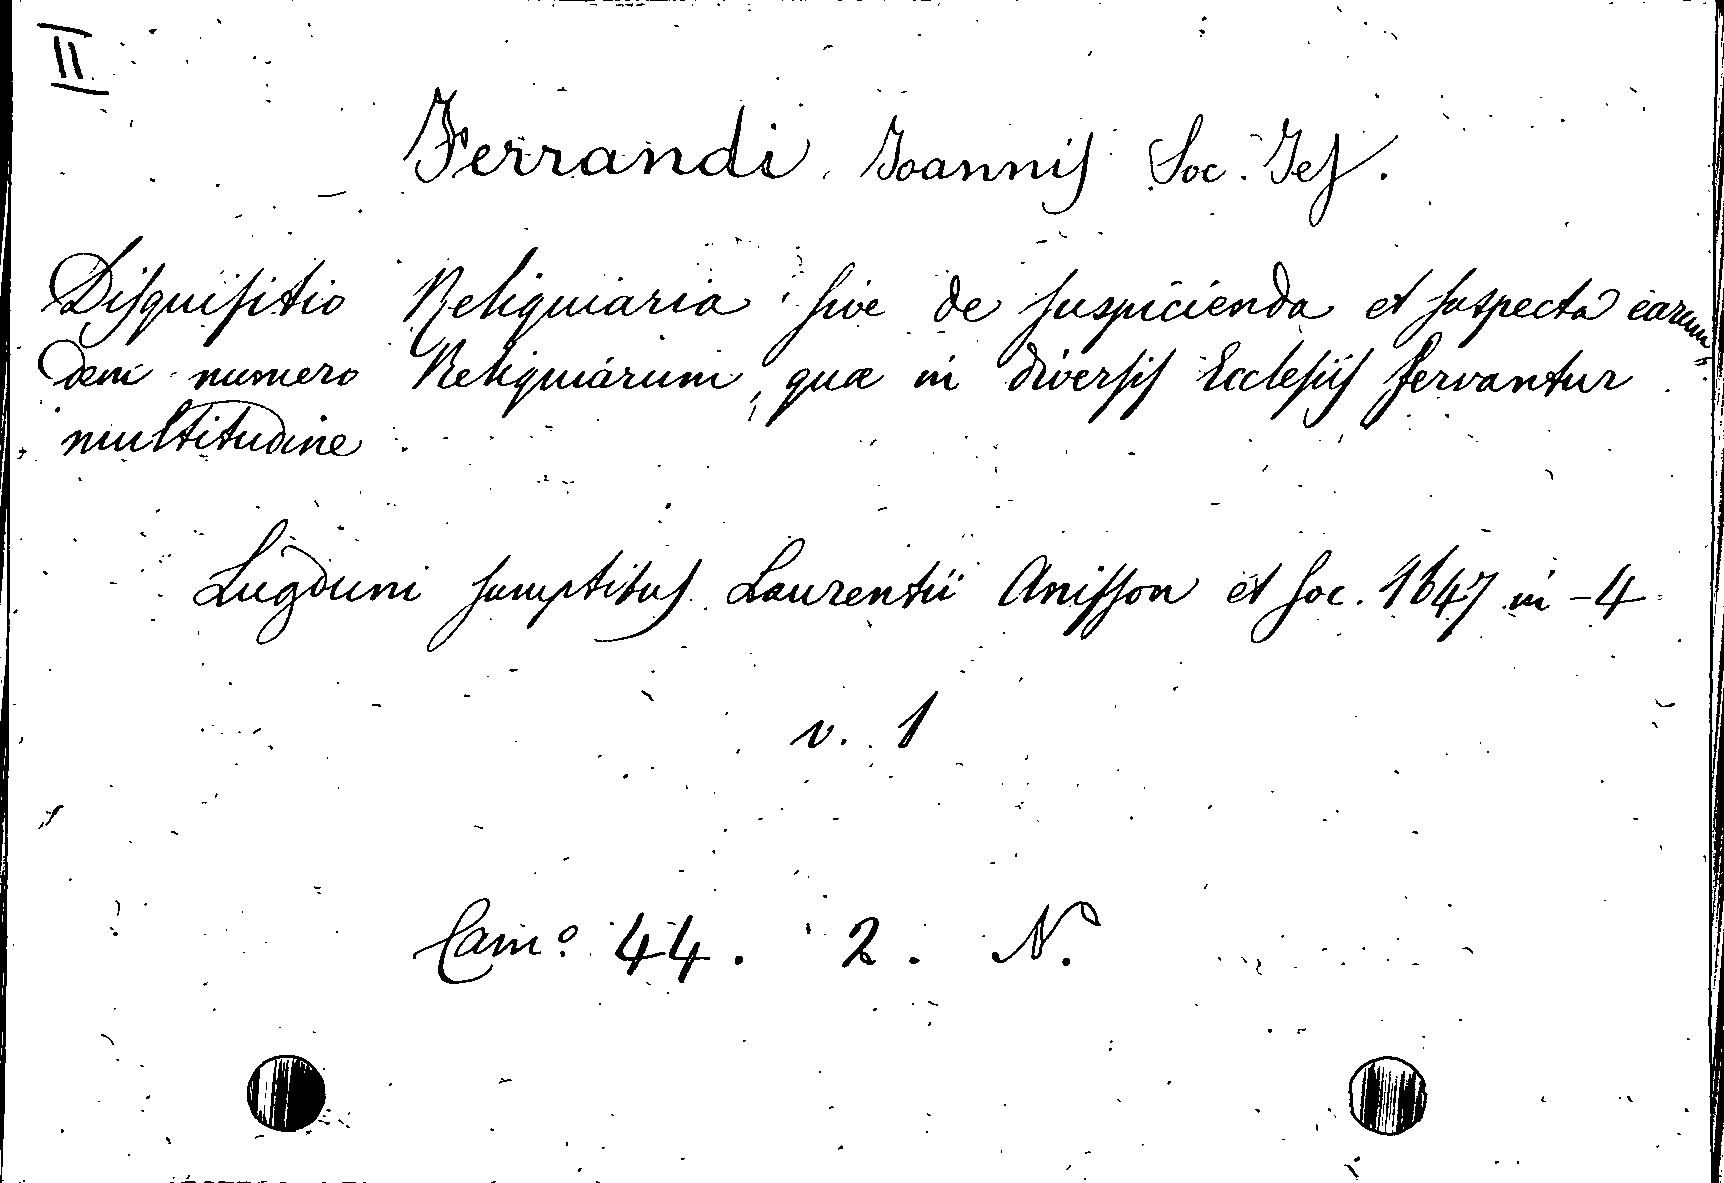 II
Ferrandi Joannis Soc. Jes.
Disquisitio Reliquiaria sive de suspicienda et suspecta earum-
dem numero Reliquiarum, quæ in diversis Ecclesiis servantur
multitudine
Lugduni sumptibus Laurentii Anisson et soc. 1647 in-4
v. 1
Cam.º 44. 2. N.